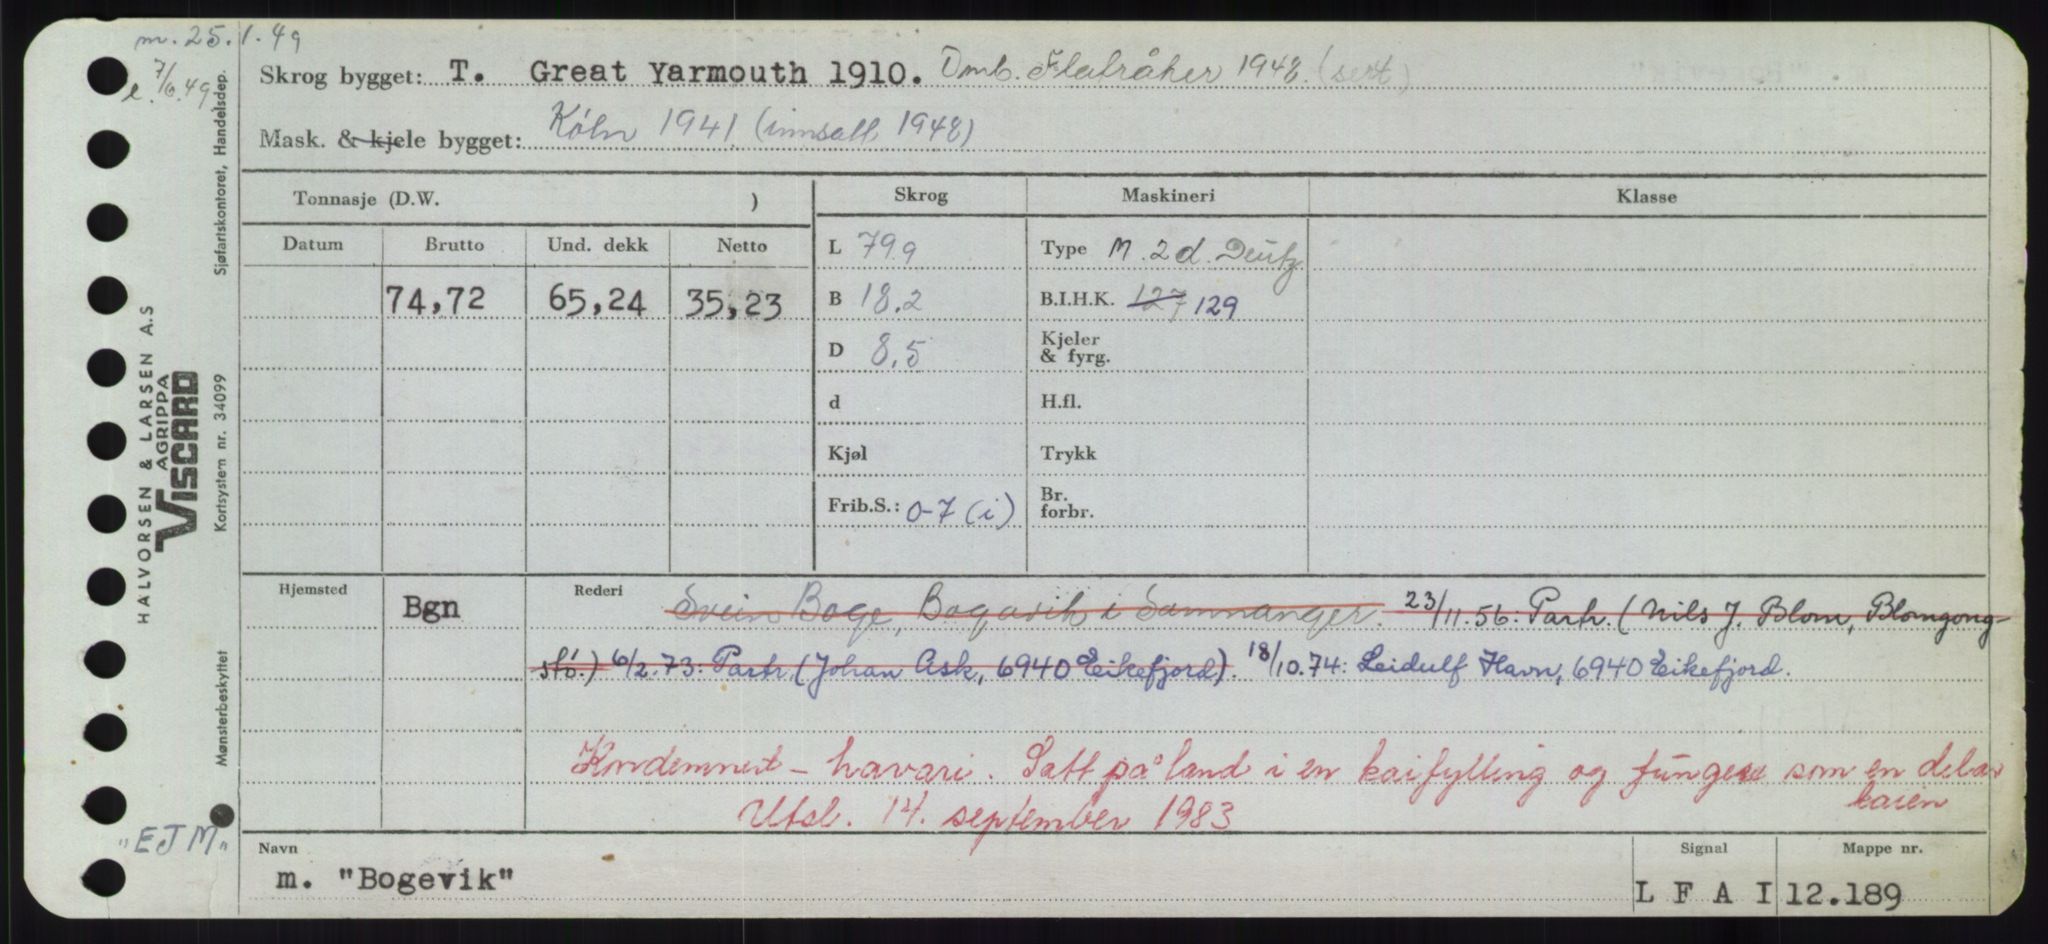 m. 25.1.49
e. 7/6.49
Skrog bygget: T. Great Yarmouth 1910. Omb. Flatråker 1948 (sert)
Mask. & kjele bygget: Køln 1941 (innsatt 1948)
Tonnasje (D.W. )
Skrog
Maskineri
Klasse
Datum
Brutto
Und. dekk
Netto
L 79.9
Type M. 2 d. Deutz
74,72
65,24
35,23
B 18.2
B.I.H.K. 127 129
D 8,5
Kjeler
& fyrg.
d
H.fl.
Kjøl
Trykk
Frib.S.: 0-7 (i)
Br.
forbr.
Hjemsted
Bgn
Rederi
Svein Boge, Bogavik i Samnanger. 23/11.56: Partr. (Nils J. Blom, Blomgong-
stø.) 6/2.73: Partr. (Johan Ask, 6940 Eikefjord). 18/10.74: Leidulf Havn, 6940 Eikefjord.
Kondemnert - havari. Satt på land i en kaifylling og fungerer som en del av
kaien
Utsl. 14. september 1983
Navn
m. "Bogevik"
Signal
L F A I
Mappe nr.
12.189
Sjøfartskontoret, Handelsdep.
HALVORSEN & LARSEN A.S
AGRIPPA
VISCARD
Kortsystem nr. 34099
Mønsterbeskyttet
"EJM"